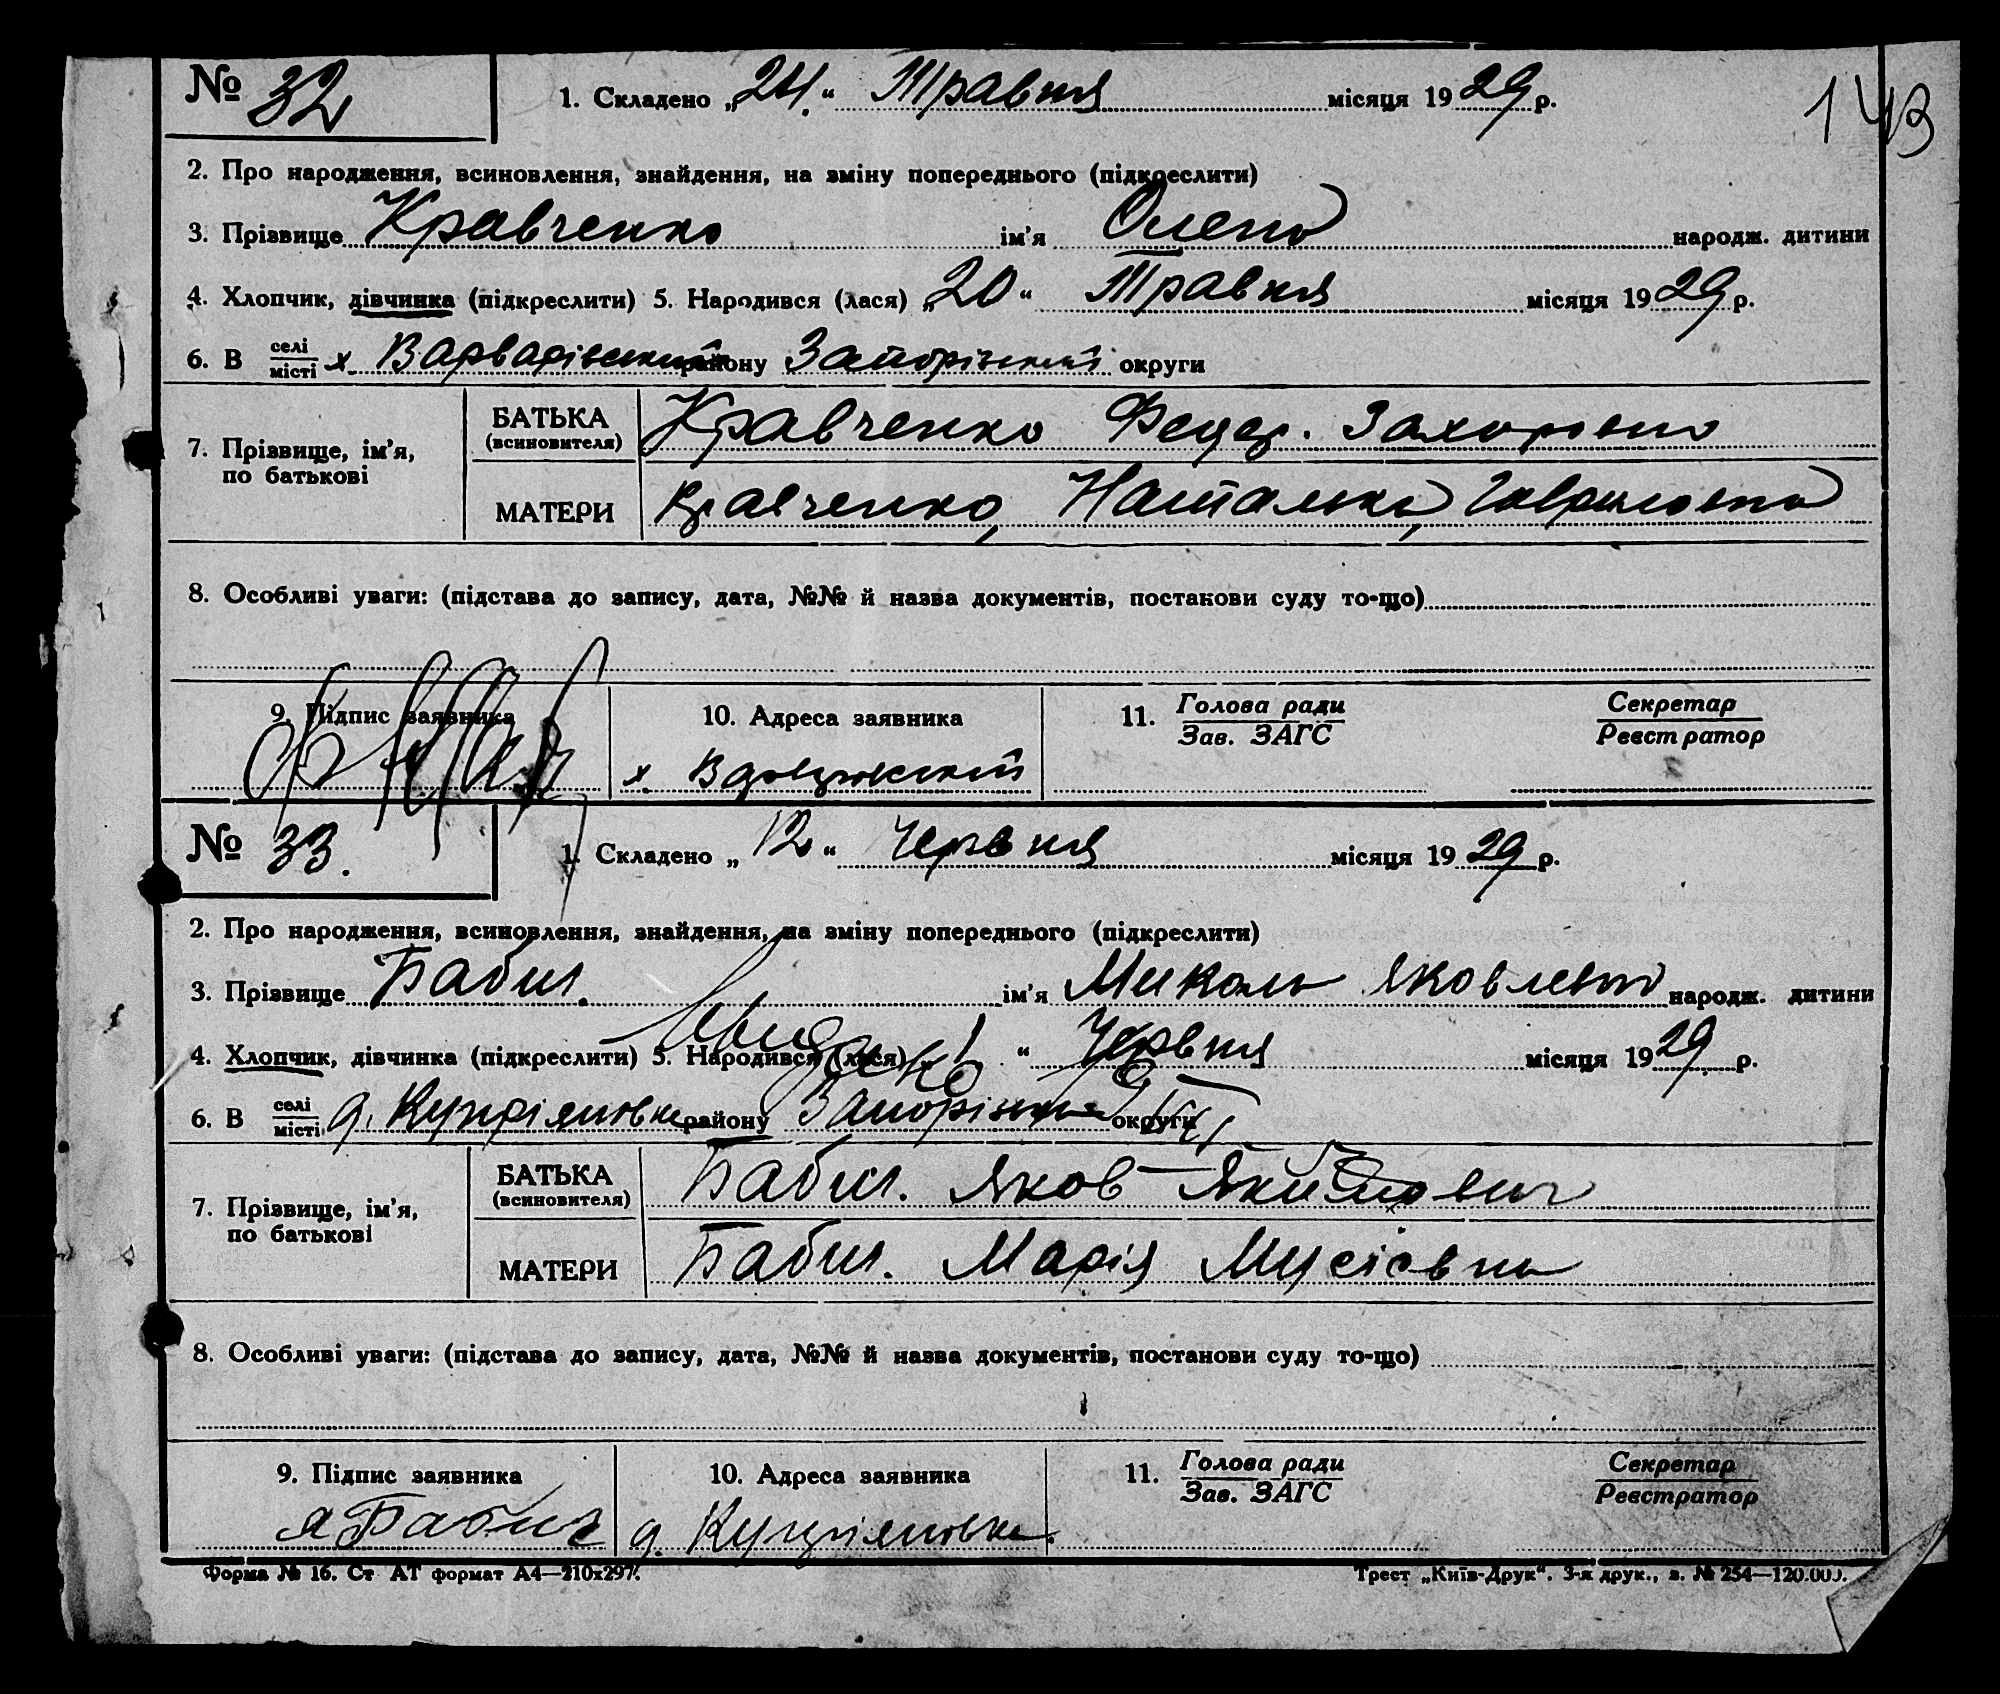 № 32
1. Складено „24.“ Травня місяця 1929 р.
143
2. Про народження, всиновлення, знайдення, на зміну попереднього (підкреслити)
3. Прізвище Кравченко ім'я Олена народж. дитини
4. Хлопчик, дівчинка (підкреслити) 5. Народився (лася) „20“ Травня місяця 1929 р.
6. В селі місті х. Варварівський району Запорізької округи
7. Прізвище, ім'я, по батькові
БАТЬКА (всиновителя) Кравченко Федер.
МАТЕРИ Кравченко, Наталка, Гавриловна
8. Особливі уваги: (підстава до запису, дата, №№ й назва документів, постакови суду то-що)
9. Підпис заявника
10. Адреса заявника
х.
11. Голова ради Зав. ЗАГС
Секретар Реєстратор
№ 33.
1. Складено „12“ Червня місяця 1929 р.
2. Про народження, всиновлення, знайдення, на зміну попереднього (підкреслити)
3. Прізвище Бабич. ім'я Миколь Яковлевич народж. дитини
4. Хлопчик, дівчинка (підкреслити) 5. Народився (лася) „1“ Червня місяця 1929 р.
6. В селі місті д. Купріяновка району Запорізька округи
7. Прізвище, ім'я, по батькові
БАТЬКА (всиновителя) Бабич. Яков Якимович
МАТЕРИ Бабич. Марія Мусієвна
8. Особливі уваги: (підстава до запису, дата, №№ й назва документів, постанови суду то-що)
9. Підпис заявника
я Бабич
10. Адреса заявника
д. Купріяновка.
11. Голова ради Зав. ЗАГС
Секретар Реєстратор
Форма № 16. Ст АТ формат А4—210х297.
Трест „Київ-Друк“. 3-я друк., з. № 254—120.000.